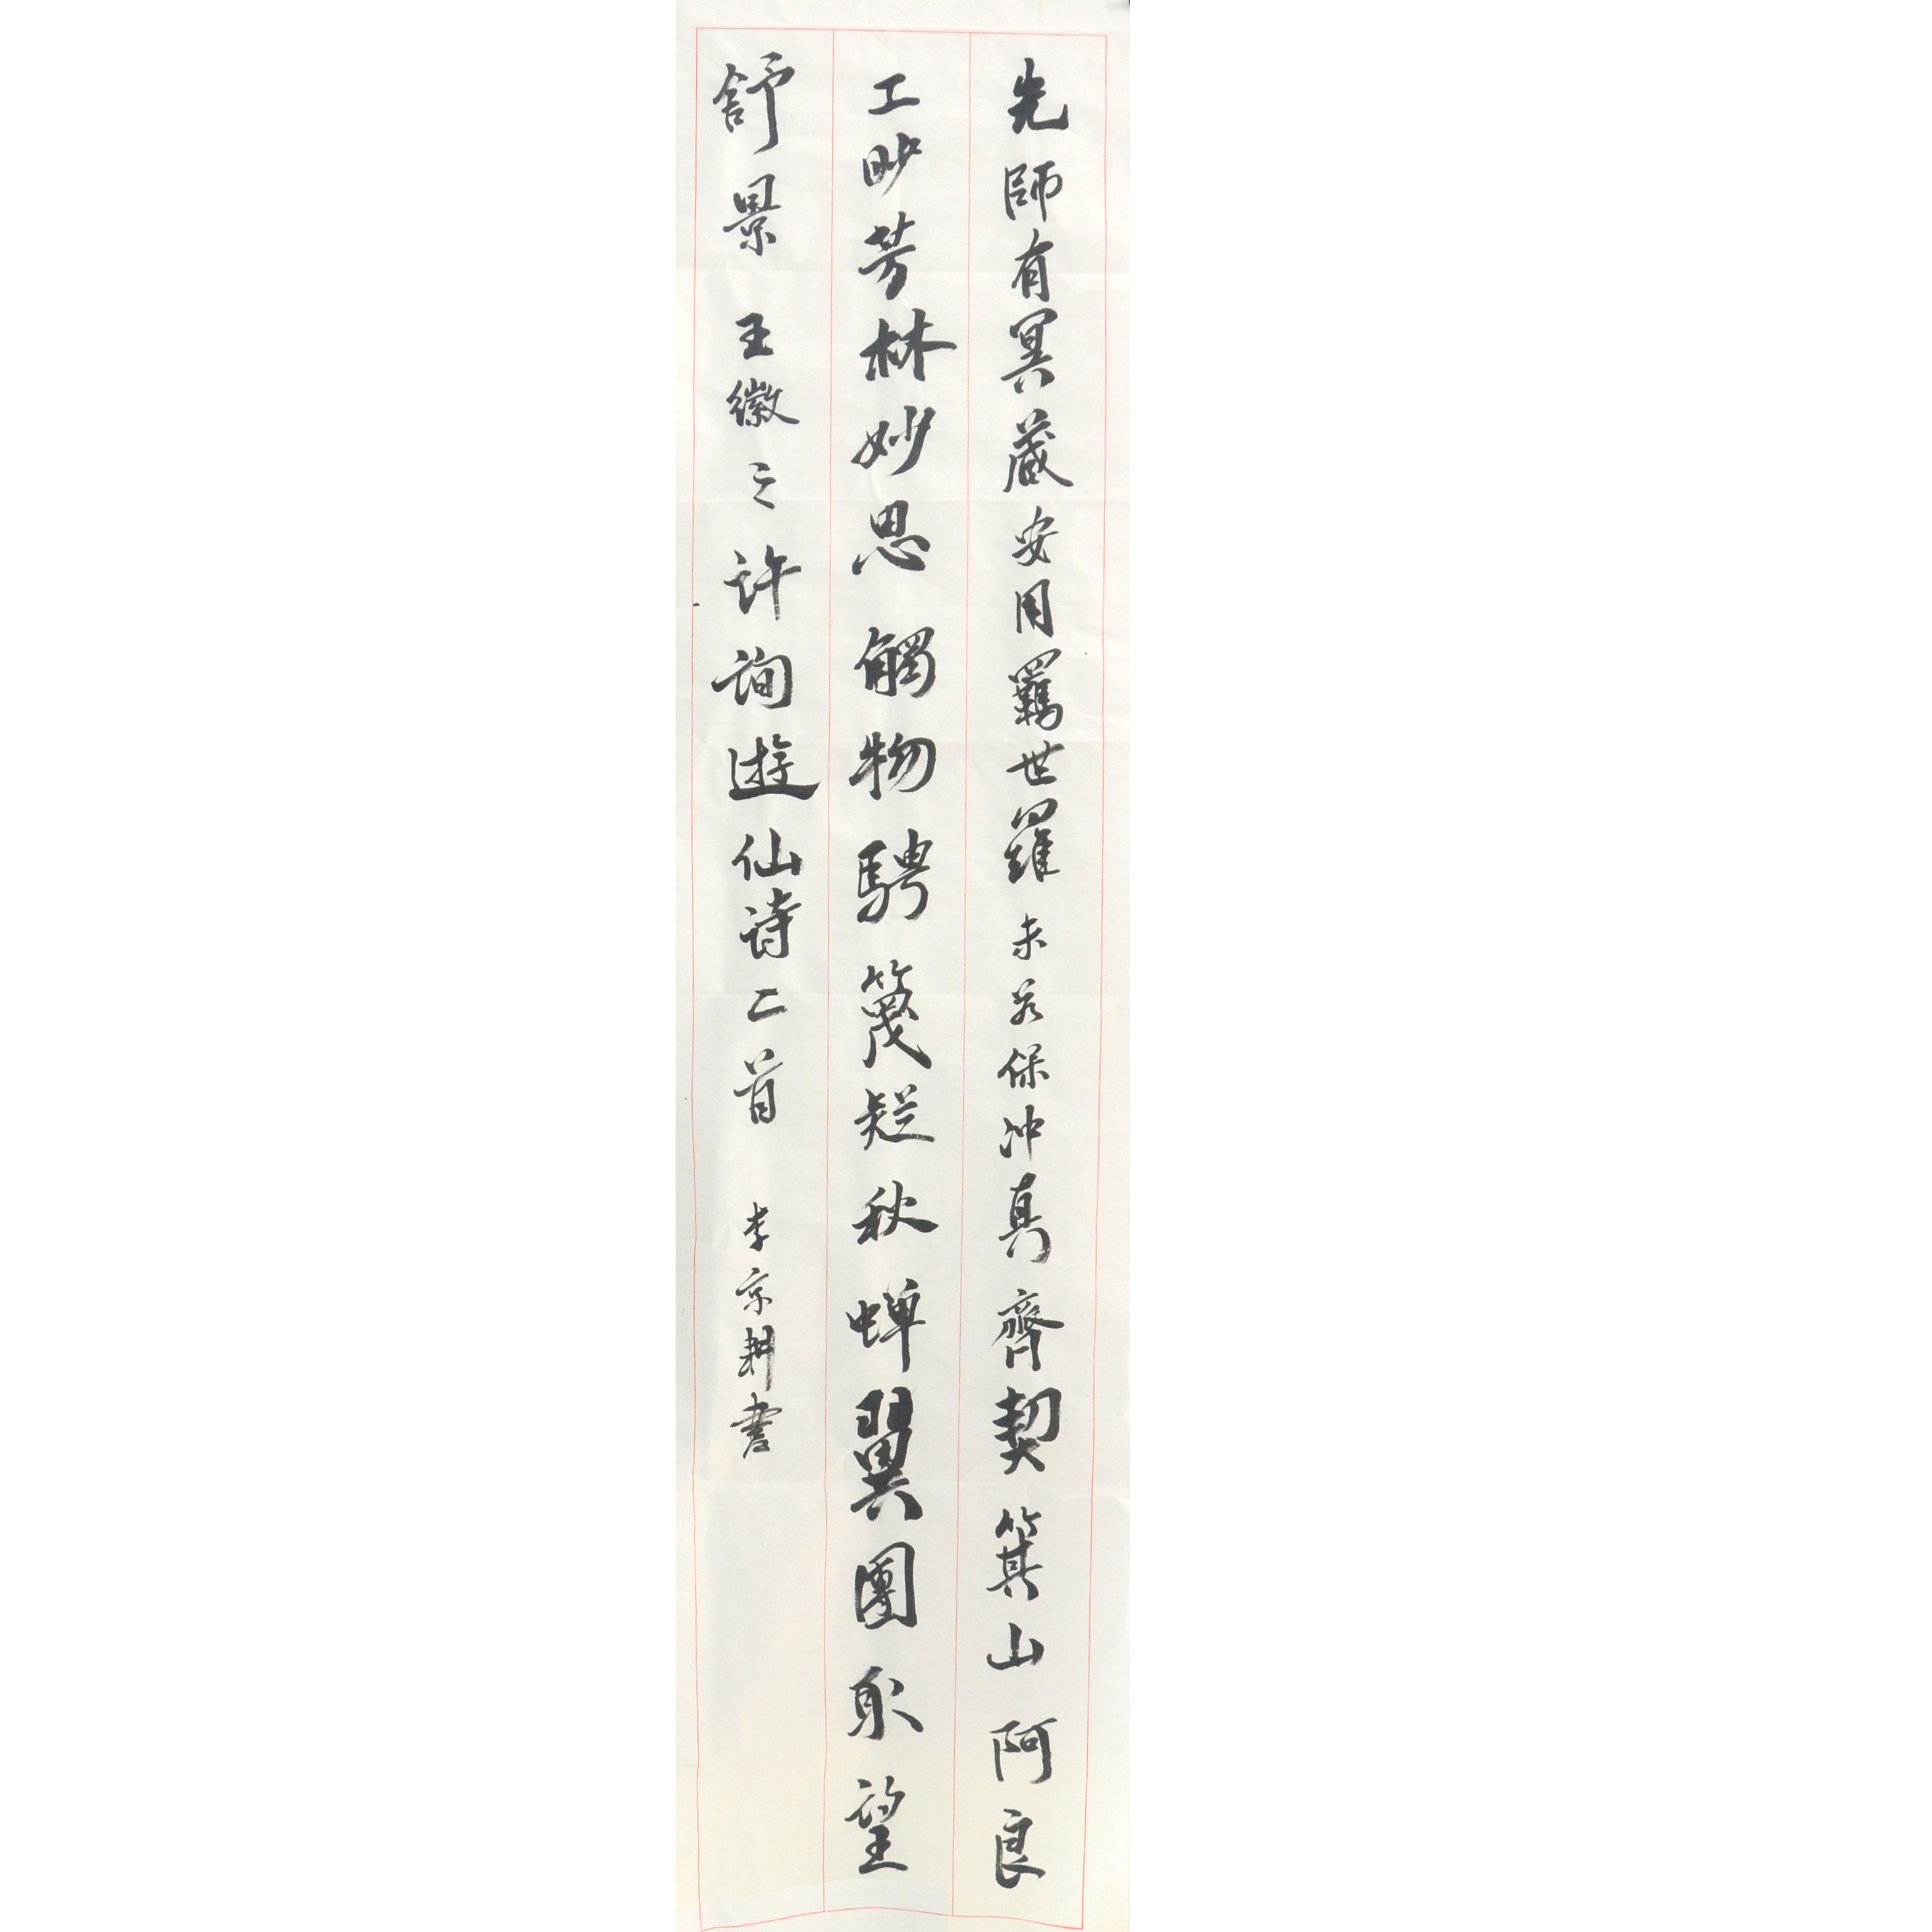 先師有冥藏安用羈世羅未若保冲真齊契箕山阿良
工眇芳林妙思觸物騁篾疑秋蝉翼團取望
舒景 王徽之 许询遊仙诗二首 李京耕書